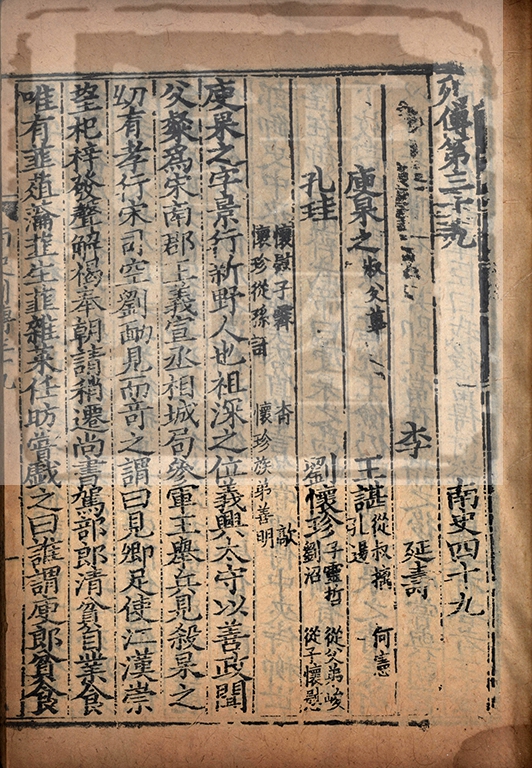 列傳第三十九 南史四十九
李 延壽
庾杲之 叔父蓽 王諶 從叔摛 何憲 孔逷
孔珪 劉懷珍 子靈哲 從父弟峻 劉沼 從子懷慰
懷慰子霽 杳 歊 懷珍從孫訏 懷珍族弟善明
庾杲之字景行新野人也祖深之位義興太守以善政聞
父粲爲宋南郡王義宣丞相城局參軍王舉兵見殺杲之
幼有孝行宋司空劉勔見而奇之謂曰見卿足使江漢崇
望杞梓發聲解褐奉朝請稍遷尚書駕部郎清貧自業食
唯有韮葅瀹韮生韮雜菜任昉嘗戲之曰誰謂庾郎貧食